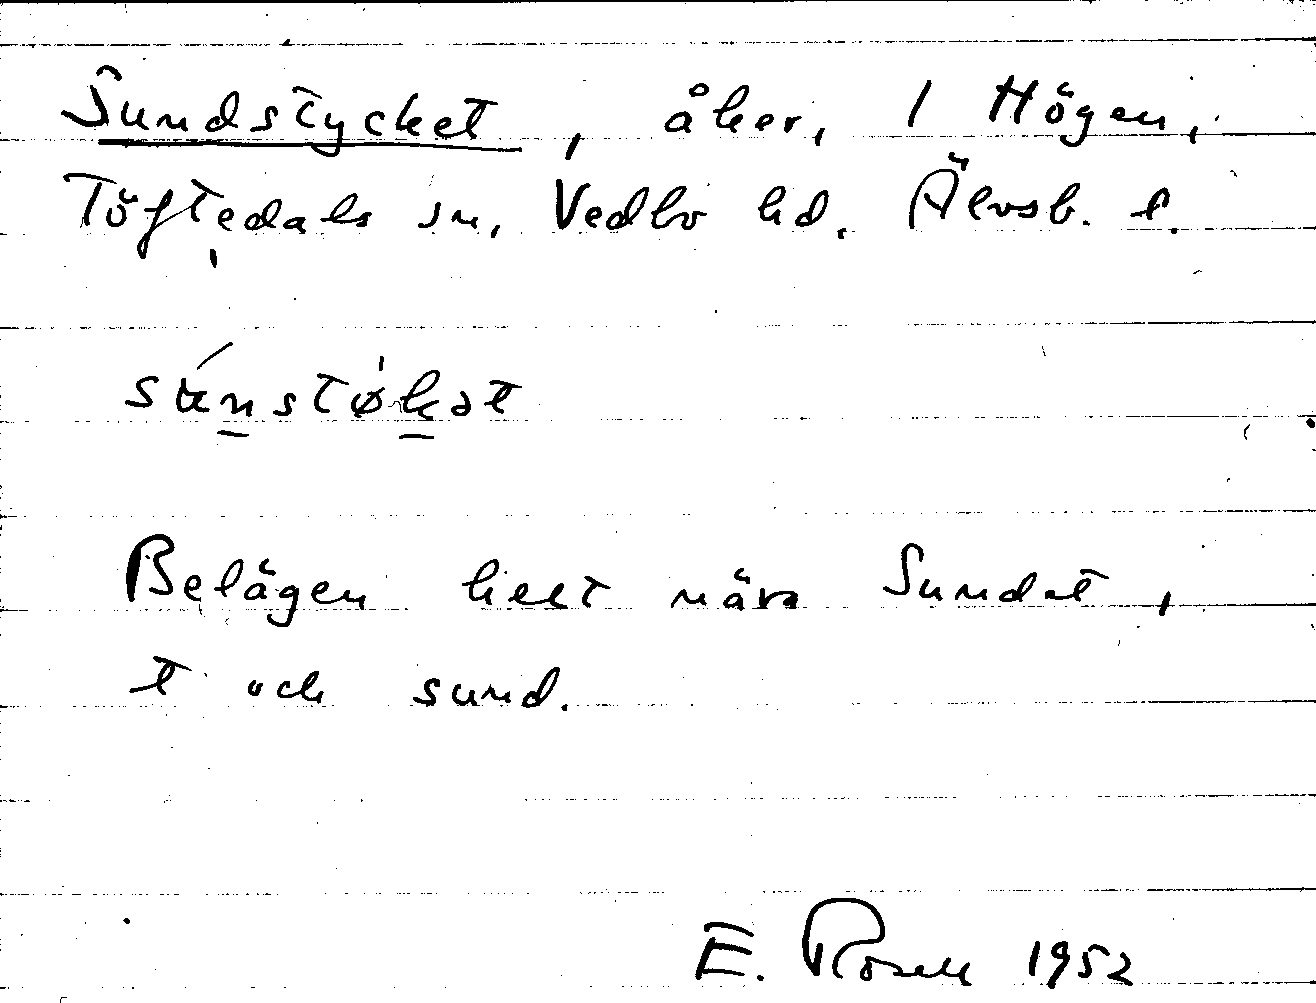 Sundstycket, åker, 1 Högen,
Töftedals sn, Vedbo hd. Älvsb. l.
sú̱nstø̀ḵət
Belägen helt nära Sundet,
t och sund.
E. Rosell 1952